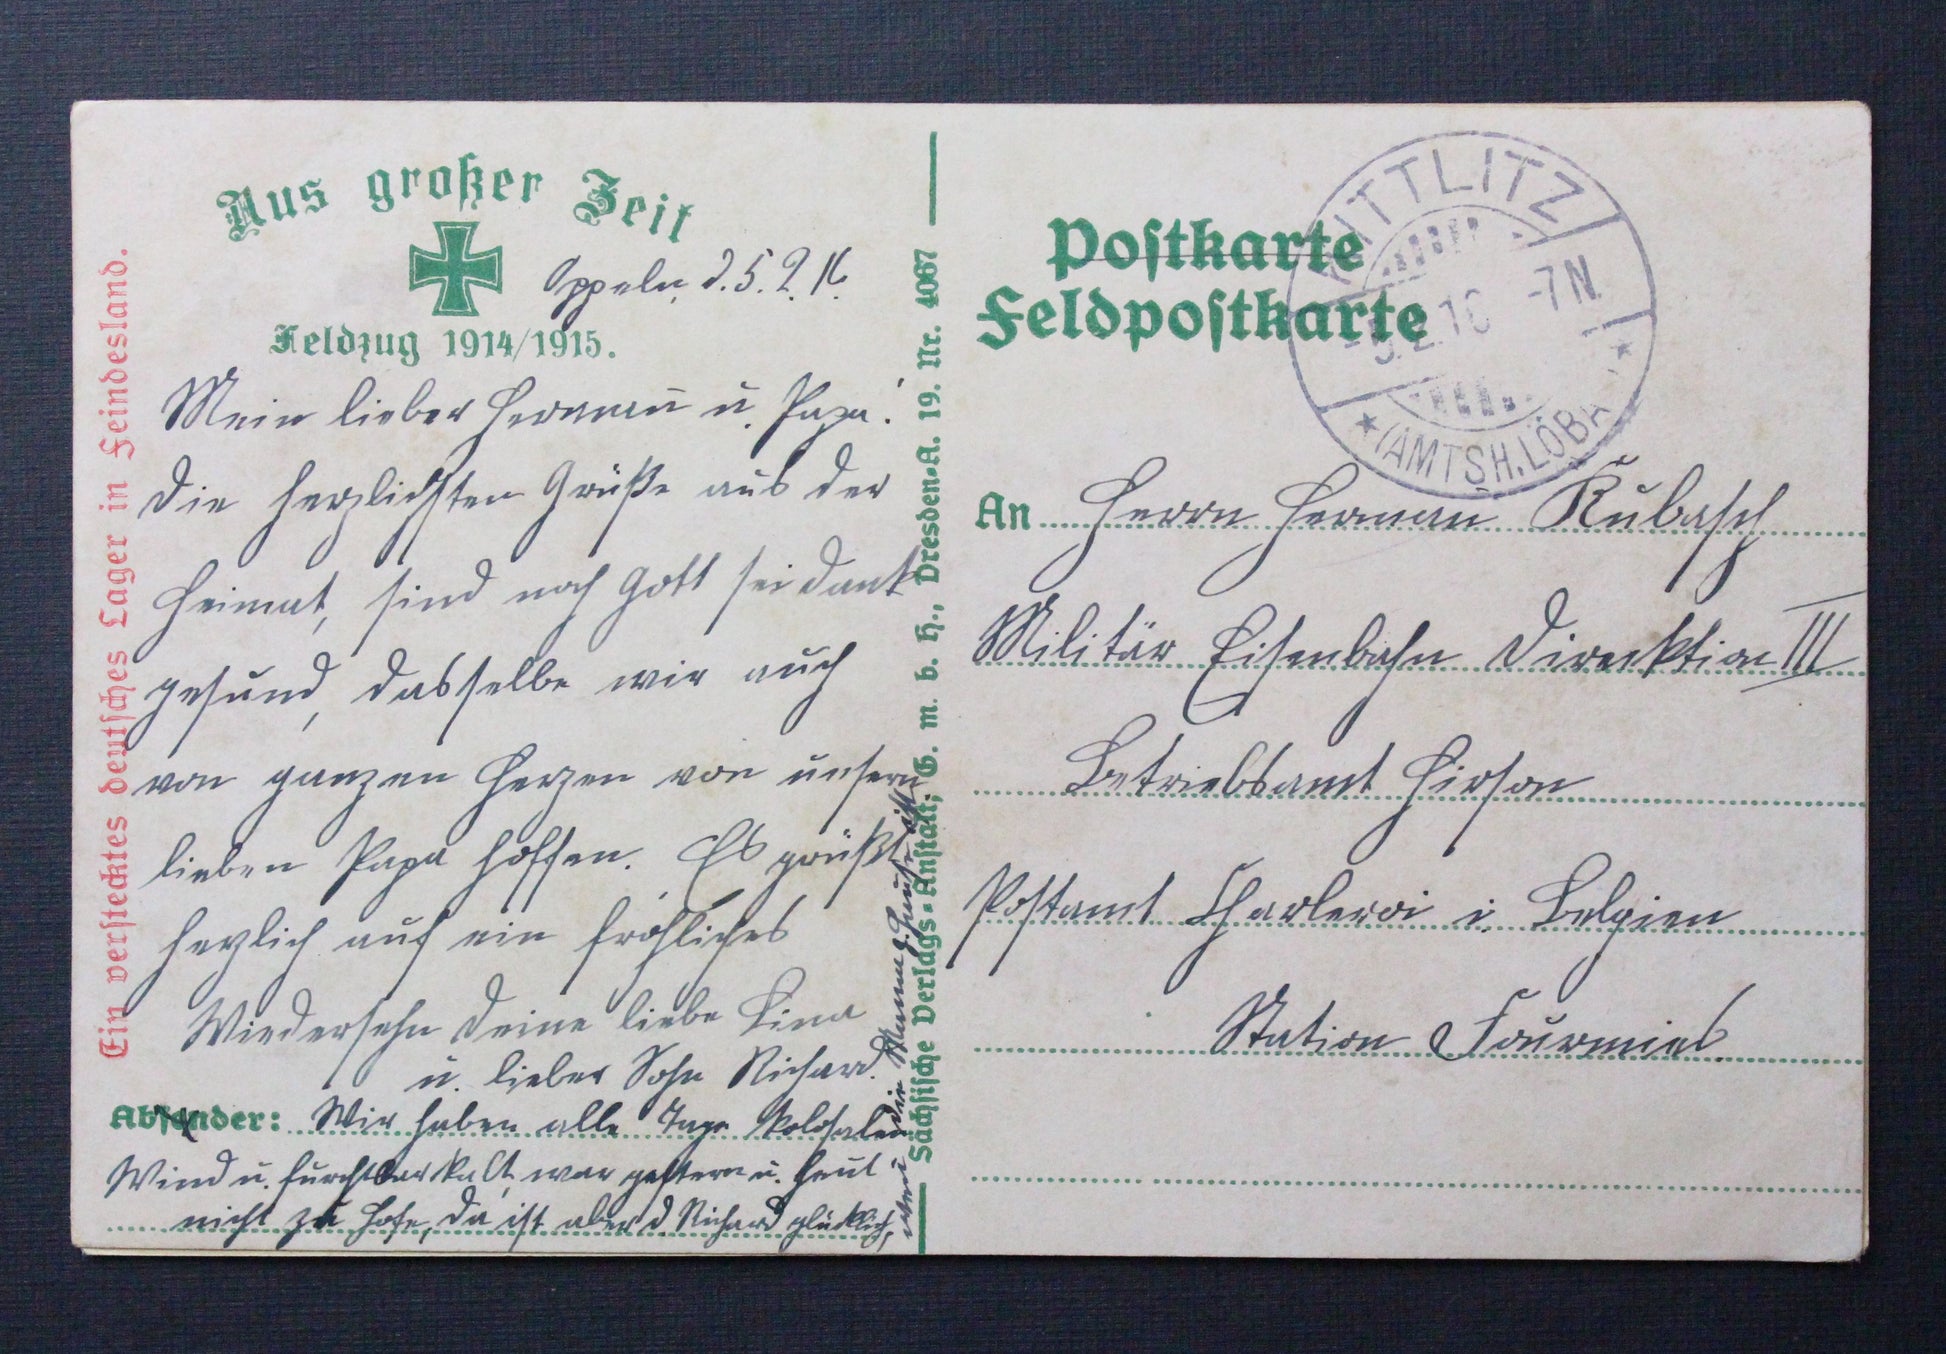 Aus großer Zeit
Feldzug 1914/1915.
Oppeln, d. 5. 2. 16.
Mein lieber Hermann u. Papa!
Die herzlichsten Grüße aus der
Heimat, sind noch Gott sei dank
gesund, dasselbe wir auch
von ganzen Herzen von unsern
lieben Papa hoffen. Es grüßt
herzlich auf ein fröhliches
Wiedersehn Deine liebe Lina
u. lieber Sohn Richard.
Absender: Wir haben alle Tage kolosalen
Wind u. furchtbar kalt, war gestern u. heut
nicht zu Hofe, da ist aber d. Richard glücklich,
wen die Mama z. Hause ist.
Ein verstecktes deutsches Lager in Feindesland.
Sächsische Verlags-Anstalt, G. m. b. H., Dresden-A. 19. Nr. 4067
Postkarte
Feldpostkarte
KITTLITZ
-5.2.16 -7N.
* (AMTSH. LÖBAU) *
An Herrn Herman Kubasch
Militär Eisenbahn Direcktion III
Betriebsamt Hirson
Postamt Charleroi i. Belgien
Station Fourmies.